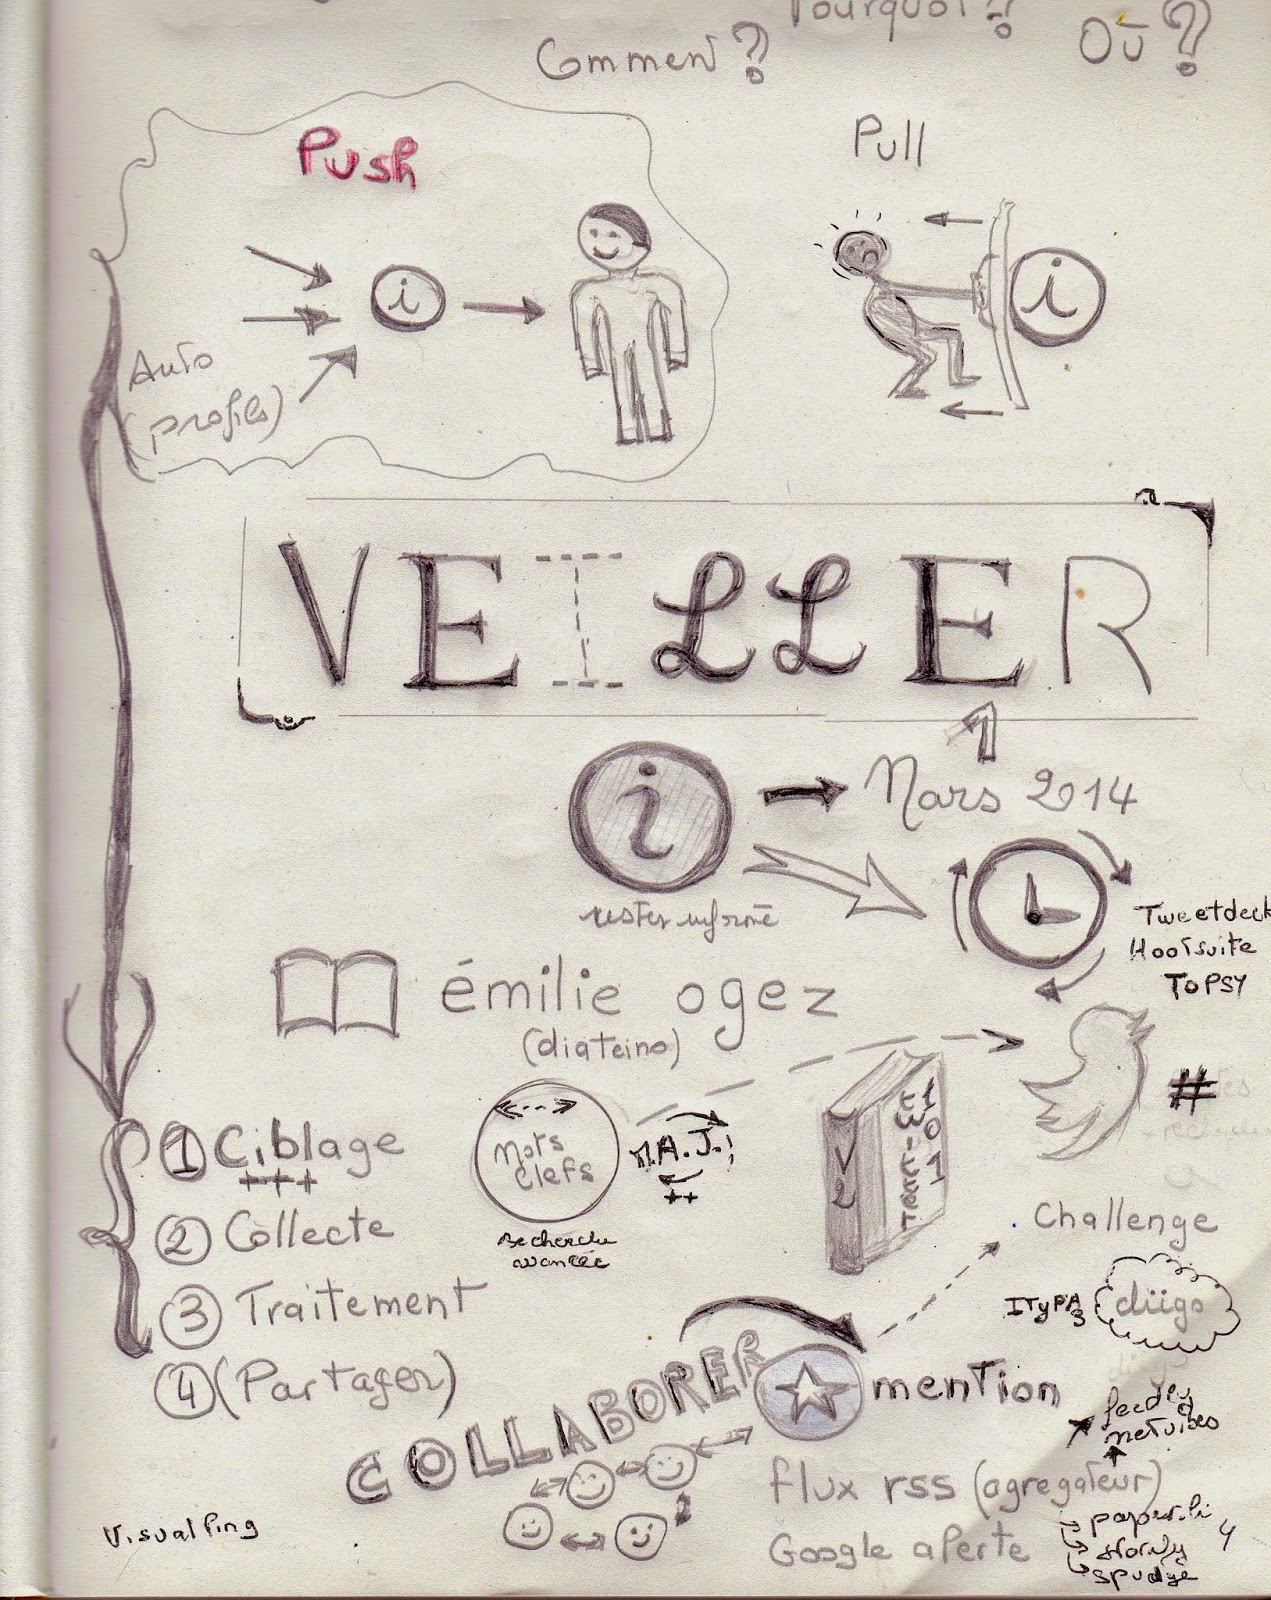 Pourquoi ?
Comment ?
Où ?
Push
Pull
i
i
Auto
(profils)
VEILLER
i
Mars 2014
rester informé
Tweetdeck
Hootsuite
TOPSY
émilie ogez
(diateino)
#
1 Ciblage
+++
Mots
clefs
M.A.J.
++
recherche
avancée
V2
2 Collecte
Challenge
3 Traitement
ITyPA
3
diigo
4 (Partager)
COLLABORER
mention
feedly
netvibes
flux rss (agregateur)
Google alerte
paper.li
storify
spundge
Visualping